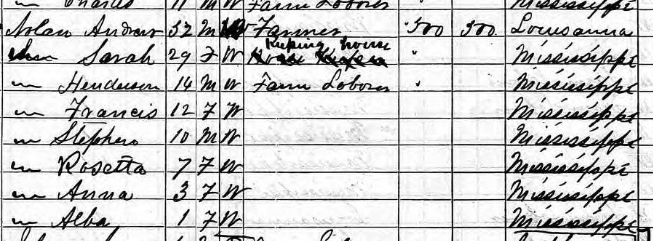 Charles 11 M W Farm Laborer Mississippi
Nolan Andrew 32 M W Farmer 500 500 Louisanna
" Sarah 29 F W Keeping house Mississippi
" Henderson 14 M W Farm Laborer Mississippi
" Francis 12 F W Mississippi
" Stephen 10 M W Mississippi
" Rosetta 7 F W Mississippi
" Anna 3 F W Mississippi
" Alba 1 F W Mississippi